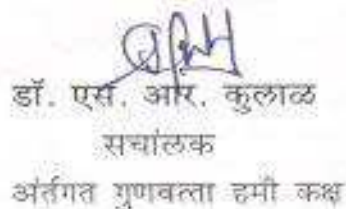 डॉ. एस. आर. कुलाळ
सचांलक
अंर्तगत गुणवत्ता हमी कक्ष